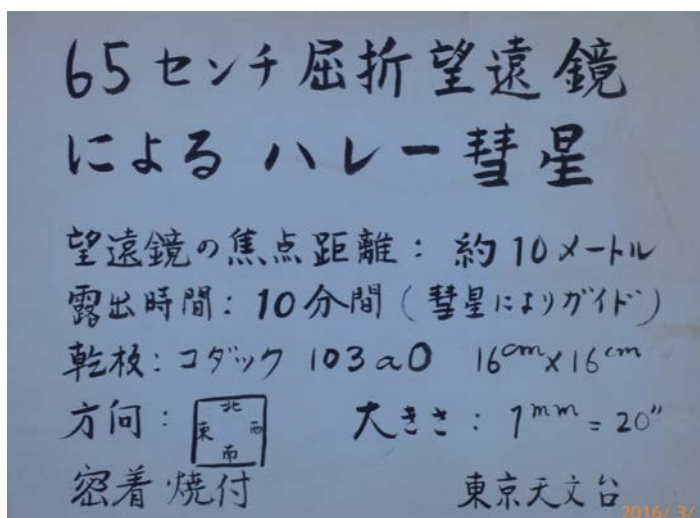 65センチ屈折望遠鏡
による ハレー彗星
望遠鏡の焦点距離：約10メートル
露出時間：10分間（彗星によりガイド）
乾板：コダック 103aO 16cm×16cm
方向：北東西南 大きさ：1mm=20"
密着焼付 東京天文台
2016/3/